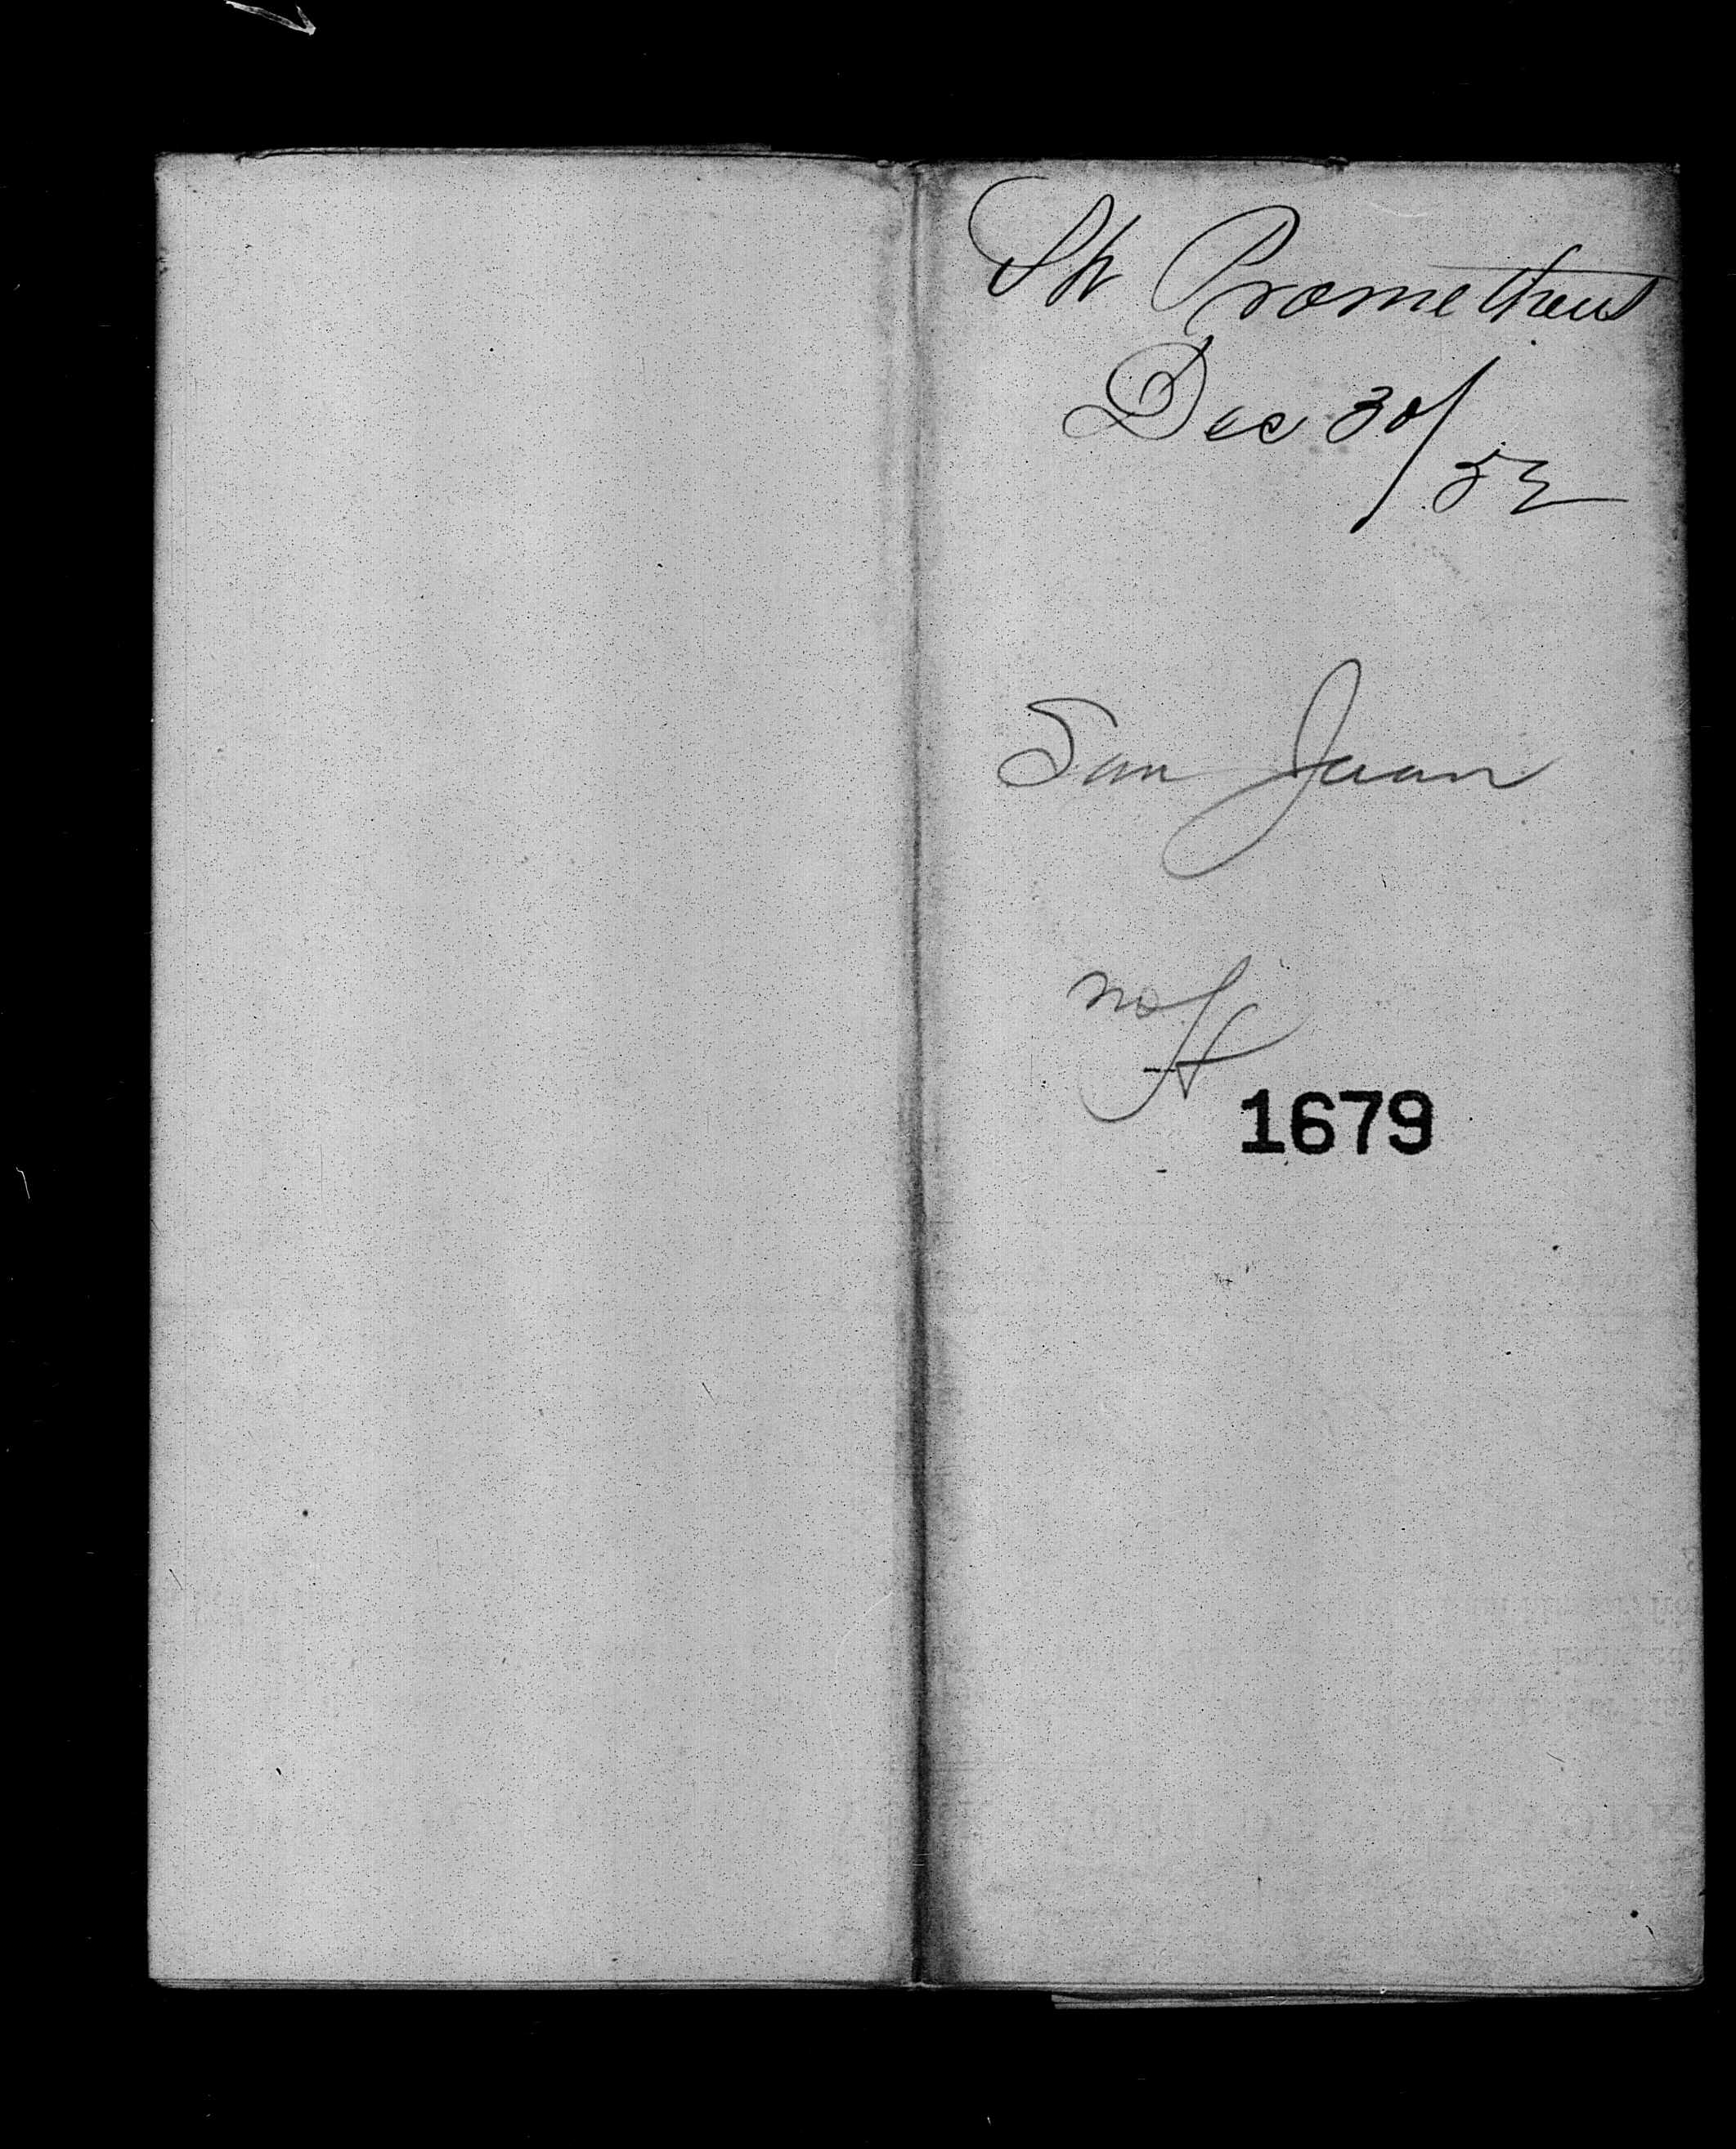 Str Prometheus
Dec 30/52
San Juan
1679